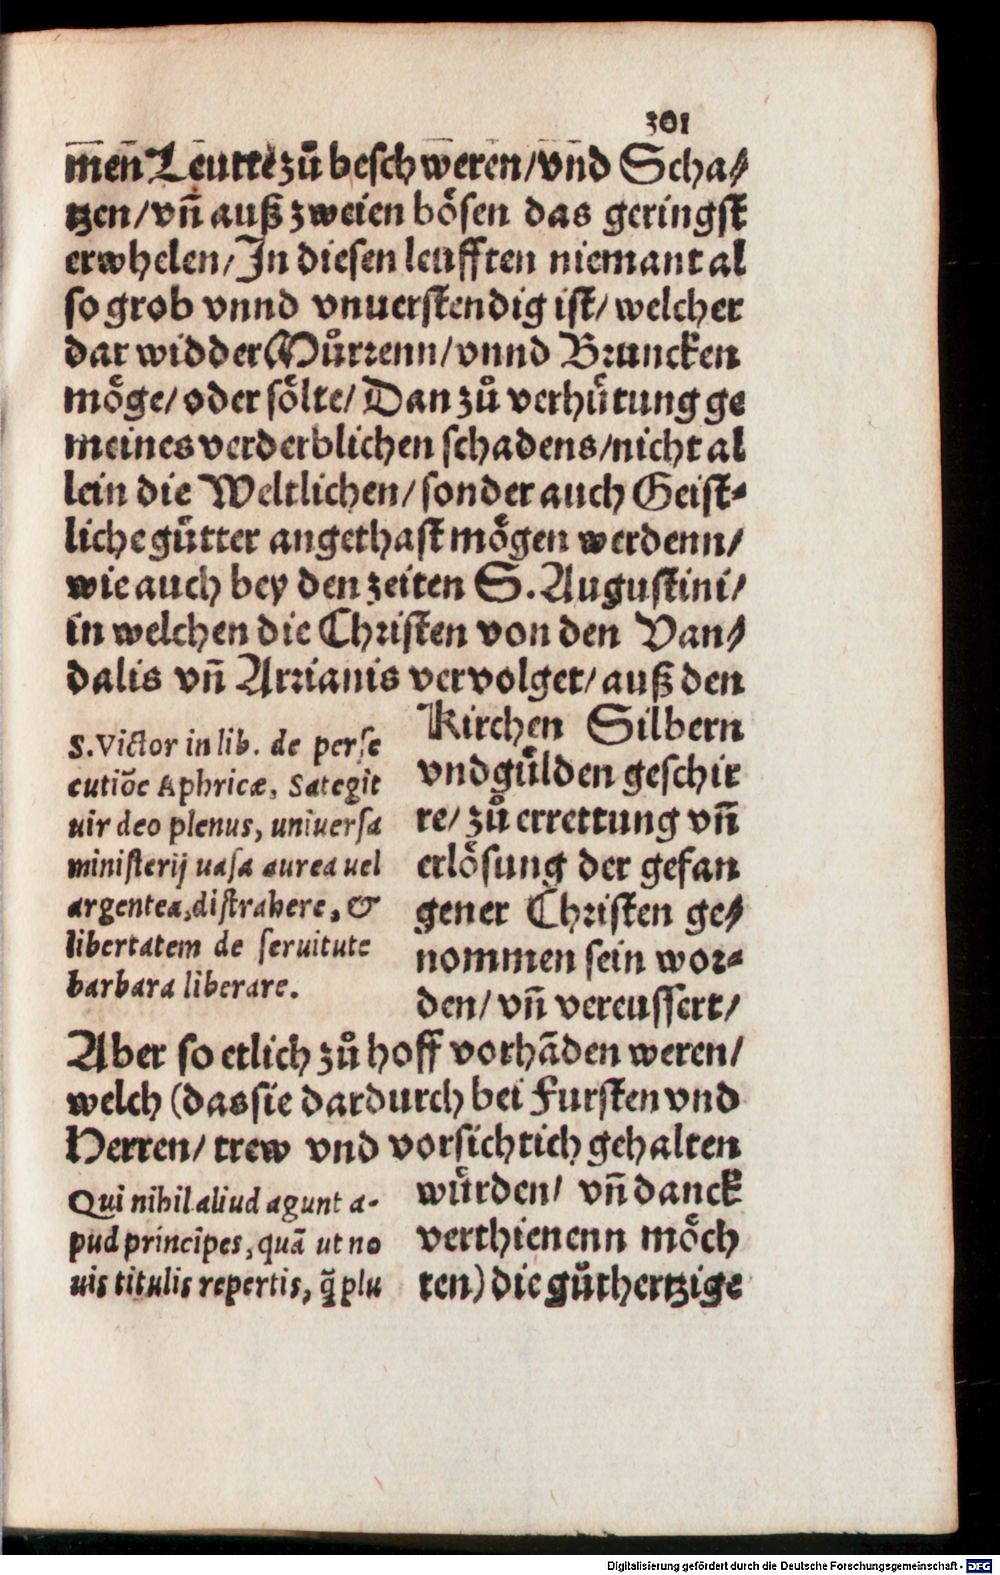 301
men̄ Leutte zů beschweren/vnnd Scha⸗
tzen/vn̄ auß zweien bösen das geringst
erwhelen/In diesen leufften niemant al
so grob vnnd vnuerstendig ist/welcher
dar widder Můrrenn/vnnd Bruncken
möge/oder sölte/Dan zů verhütung ge
meines verderblichen schadens/nicht al
lein die Weltlichen/sonder auch Geist⸗
liche gütter angethast mögen werdenn/
wie auch bey den zeiten S. Augustini/
in welchen die Christen von den Van⸗
dalis vn̄ Arrianis vervolget/auß den
Kirchen Silbern
vnd gülden geschir
re/zů errettung vn̄
erlösung der gefan
gener Christen ge⸗
nommen sein wor⸗
den/vn̄ vereussert/
S. Victor in lib. de perse
cutiõe Aphricæ, Sategit
uir deo plenus, uniuersa
ministerij uasa aurea uel
argentea, distrahere, &
libertatem de seruitute
barbara liberare.
Aber so etlich zů hoff vorhãden weren/
welch (das sie dardurch bei Fursten vnd
Herren/trew vnd vorsichtich gehalten
würden/ vn̄ danck
verthienenn möch
ten) die gůthertzige
Qui nihil aliud agunt a-
pud principes, quã ut no
uis titulis repertis, q̃ plu
Digitalisierung gefördert durch die Deutsche Forschungsgemeinschaft - DFG